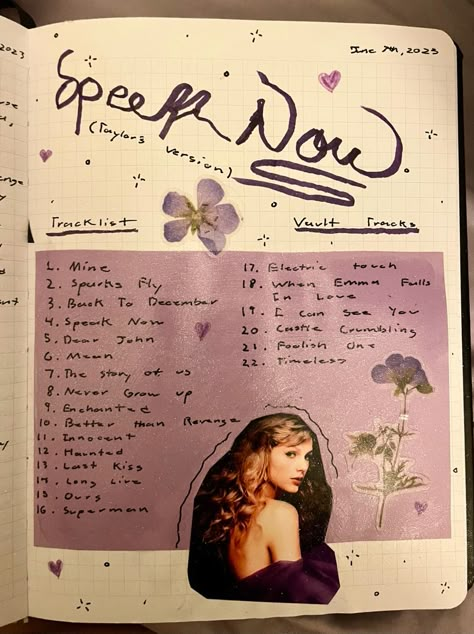 2023
June 7th, 2023
Speak Now
(Taylors Version)
Tracklist
1. Mine
2. Sparks Fly
3. Back To December
4. Speak Now
5. Dear John
6. Mean
7. The story of us
8. Never Grow up
9. Enchanted
10. Better than Revenge
11. Innocent
12. Haunted
13. Last Kiss
14. Long Live
15. Ours
16. Superman
Vault Tracks
17. Electric touch
18. When Emma Falls
In Love
19. I can see You
20. Castle Crumbling
21. Foolish One
22. Timeless